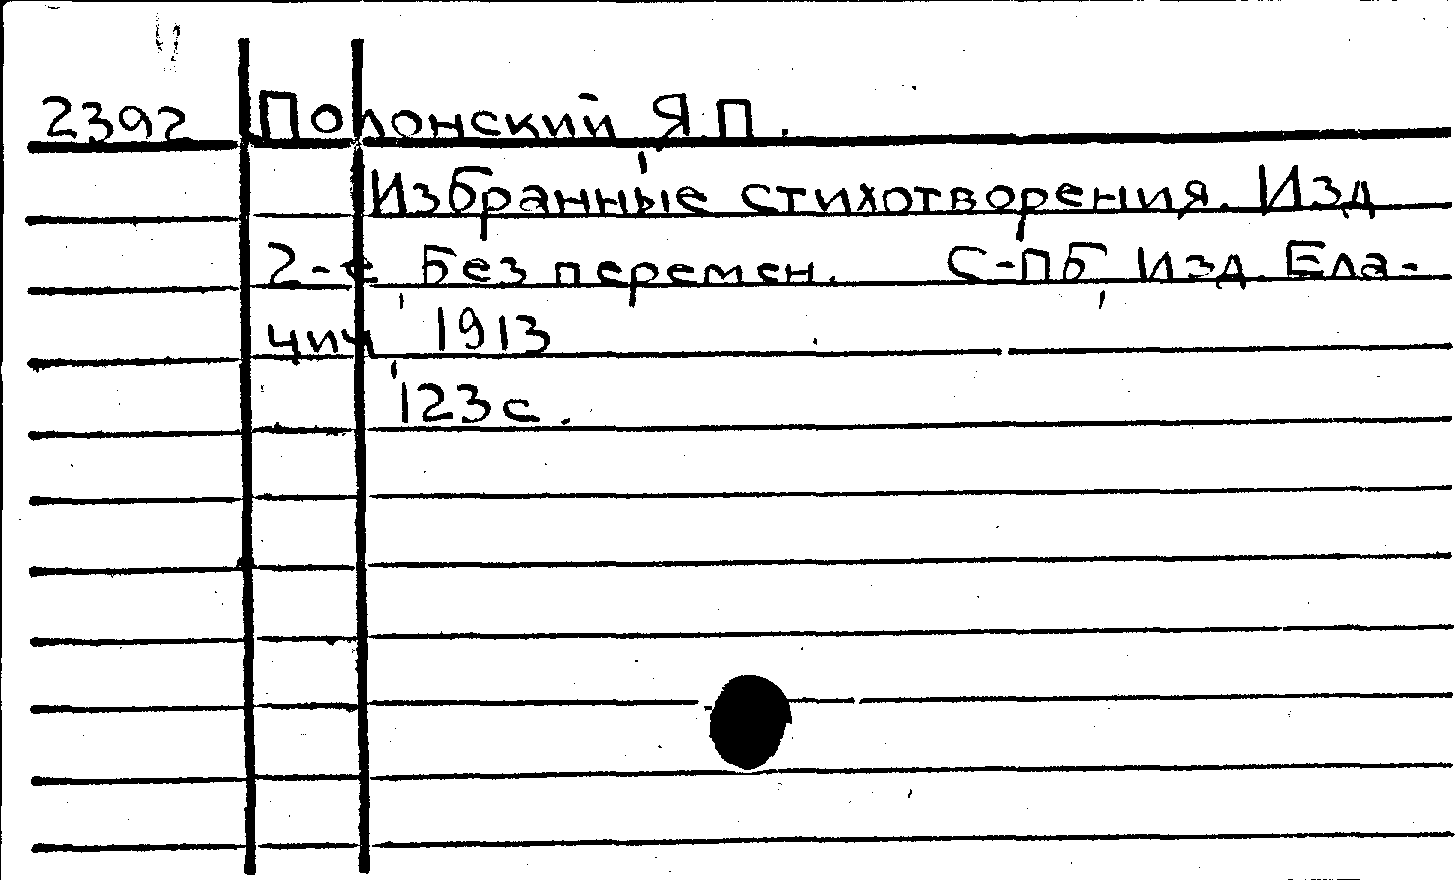 2392 Полонский Я.П.
Избранные стихотворения. Изд
2-е Без перемен. С-ПБ, Изд. Ела-
чич, 1913
123с.